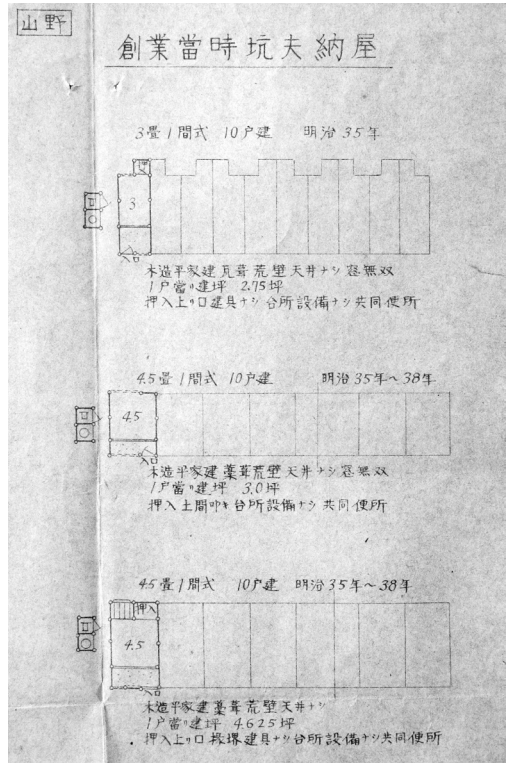 山野
創業當時坑夫納屋
3畳1間式 10戸建 明治35年
押入
3
入口
木造平家建瓦葺荒壁天井ナシ窓無双
1戸當リ建坪 2.75坪
押入上リ口建具ナシ台所設備ナシ共同便所
4.5畳1間式 10戸建 明治35年～38年
4.5
入口
木造平家建藁葺荒壁天井ナシ窓無双
1戸當リ建坪 3.0坪
押入土間叩キ台所設備ナシ共同便所
4.5畳1間式 10戸建 明治35年～38年
押入
4.5
入口
木造平家建藁葺荒壁天井ナシ
1戸當リ建坪 4.625坪
押入上リ口 建具ナシ台所設備ナシ共同便所